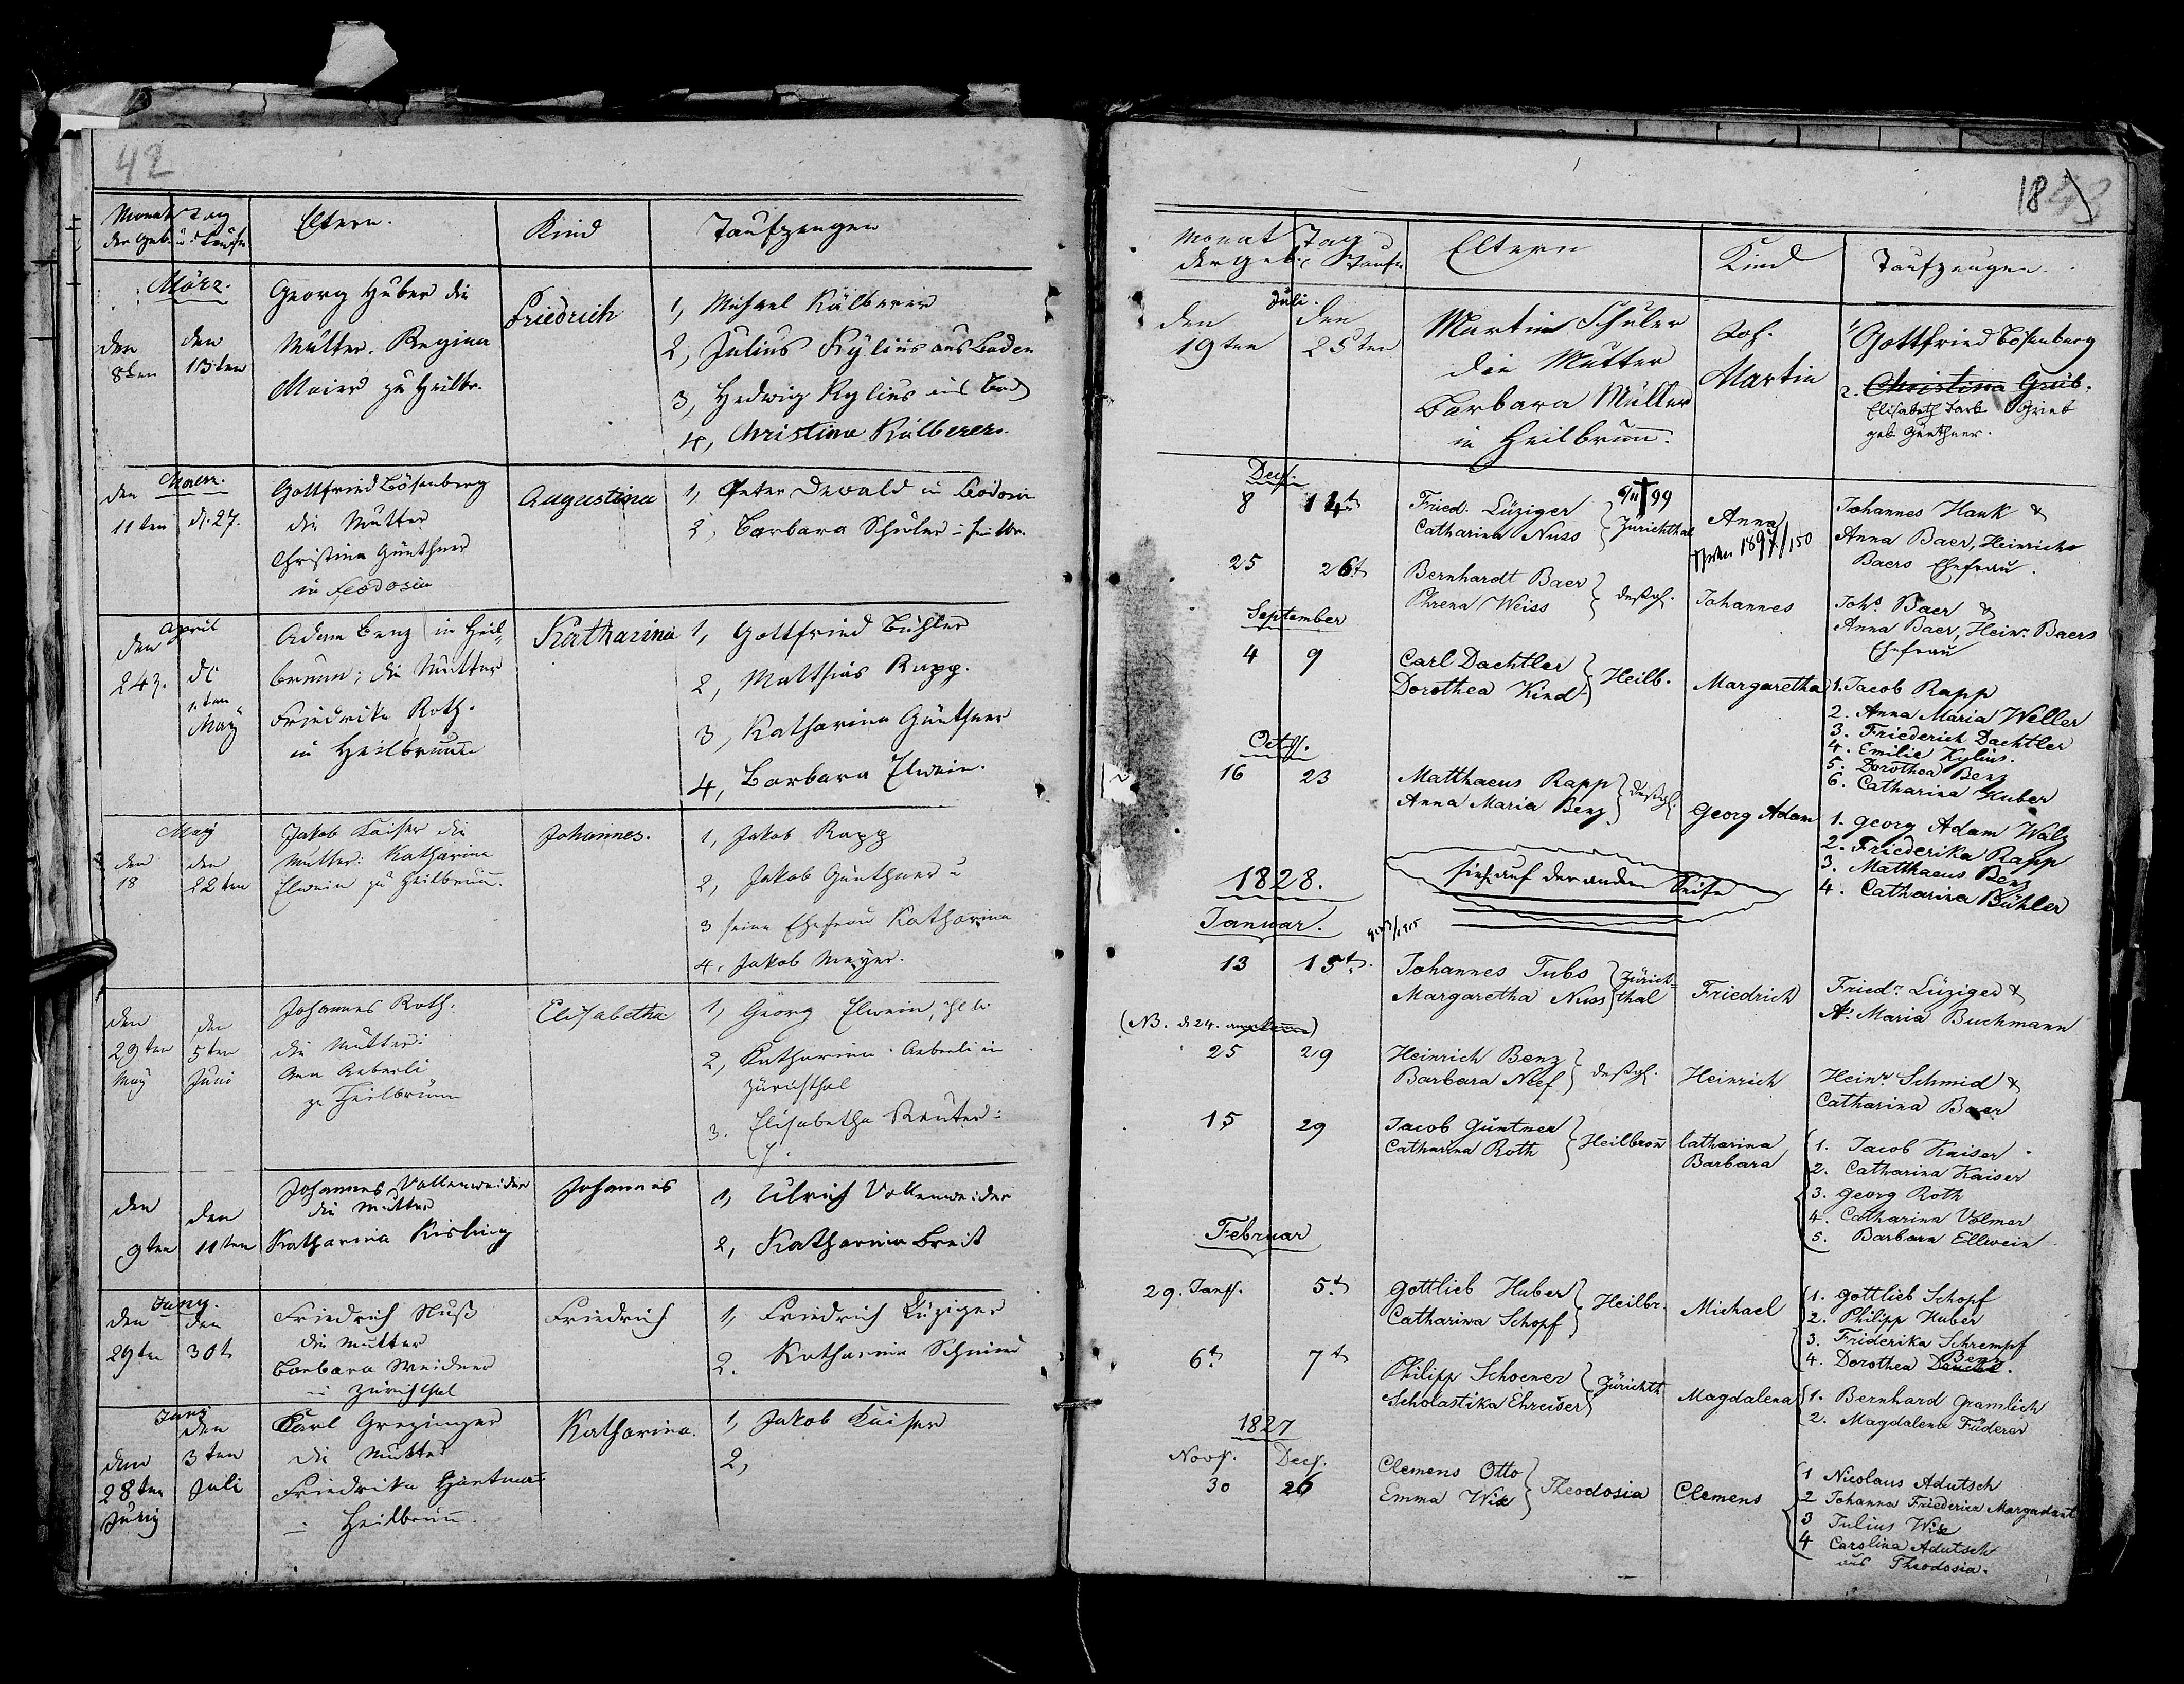 42
Monat Tag
der Geb. u. Taufe
Eltern.
Kind
Taufzeugen
März.
den 8ten
den 13ten
Georg Huber die
Mutter. Regina
Maier zu Heilbr.
Friedrich
1, Michael Kälberer
2, Julius Kylius aus Baden
3, Hedwig Kylius aus Bad
4, Christina Kälberer.
Maerz.
den 11ten
d. 27.
Gottfried Bösenberg
die Mutter
Christina Günthner
in Feodosia
Augustina
1, Peter Dewald in Feodosia
2, Barbara Schuler in Heilbr.
April
den 24
d
1ten
May
Adam Benz in Heil-
brunn; die Mutter
Friedrika Roth.
in Heilbrunn
Katharina
1, Gottfried Bühler
2, Matthias Rapp.
3, Katharina Günthner
4, Barbara Elwein.
May
den 18
den 22ten
Jakob Kaiser die
Mutter: Katharina
Elwein zu Heilbrunn.
Johannes.
1, Jakob Rapp
2, Jakob Günthner u
3 seine Ehefrau Katharina
4, Jakob Meyer.
den 29ten May
den 5ten Juni
Johannes Roth.
die Mutter:
Ann Aeberli
zu Heilbrunn
Elisabetha
1, Georg Elwein,
2, Katharina Aeberli in
Zürichthal
3. Elisabetha Reuter
den 9ten
den 11ten
Johannes Vollenweider
die Mutter
Katharina Kisling
Johannes
1, Ulrich Vollenweider
2, Katharina Breit
Juny.
den 29ten
den 30t
Friedrich Nuß
die Mutter
Barbara Weidner
in Zürichthal
Friedrich
1, Friedrich Lüziger
2. Katharina Schmid
Juny
den 28ten Juny
den 3ten Juli
Karl Grezinger
die Mutter
Friedrika Hartmann
in Heilbrunn.
Katharina.
1, Jakob Kaiser
2,
18
43
Monat Tag
der Geb. u. Taufe
Eltern
Kind
Taufzeugen.
Juli.
den 19ten
den 25ten
Martin Schuler
die Mutter
Barbara Müller
in Heilbrunn.
Joh.
Martin
1, Gottfried Bösenberg
2. Christina Grüb.
Elisabeth Barb. Grieb
geb. Günthner.
8
14t
Fried. Lüziger
Catharina Nuss
Zürichthal
Anna
1897/150
Johannes Hauk &
Anna Baer, Heinrich
Baers Ehefrau.
25
26t
Bernhardt Baer
Weiss
deßgl.
Johannes
Johs Baer &
Anna Baer, Heinr. Baers
Ehefrau
September
4
9
Carl Dachtler
Dorothea Kind
Heilb.
Margaretha
1. Jacob Rapp
2. Anna Maria Weller
3. Friederich Dachtler
4. Emilie Kylius.
5. Dorothea Benz
6. Catharina Huber
16
23
Matthaeus Rapp
Anna Maria Benz
deßgl.
Georg Adam
1. Georg Adam Walz
2. Friederika Rapp
3. Matthaeus Benz
4. Catharina Bühler
1828.
sieh auf der andern Seite
Januar.
13
15t
Johannes Tubs
Margaretha Nuss
Zürich-
thal
Friedrich
Friedr. Lüziger &
A. Maria Buchmann
(NB. d 24.
25
29
Heinrich Benz
Barbara Neef
deßgl.
Heinrich
Heinr. Schmid &
Catharina Baer
15
29
Jacob Güntner
Catharina Roth
Heilbronn
Catharina
Barbara
1. Jacob Kaiser
2. Catharina Kaiser
3. Georg Roth
4. Catharina Volmer
5. Barbara Ellwein
Februar
29. Jan.
5t
Gottlieb Huber
Catharina Schopf
Heilbr.
Michael
1. Gottlieb Schopf
2. Philipp Huber
3. Friderika Schrempf
4. Dorothea Benz
6t
7t
Philipp Schoener
Scholastika Ehreiser
Zürichth
Magdalena
1. Bernhard Gramlich
2. Magdalena Füderer
1827
30
26
Clemens Otto
Emma Wix
Theodosia
Clemens
1 Nicolaus Adutsch
2 Johanna Friederica Margadant
3 Julius Wix
4 Carolina Adutsch
aus Theodosia.